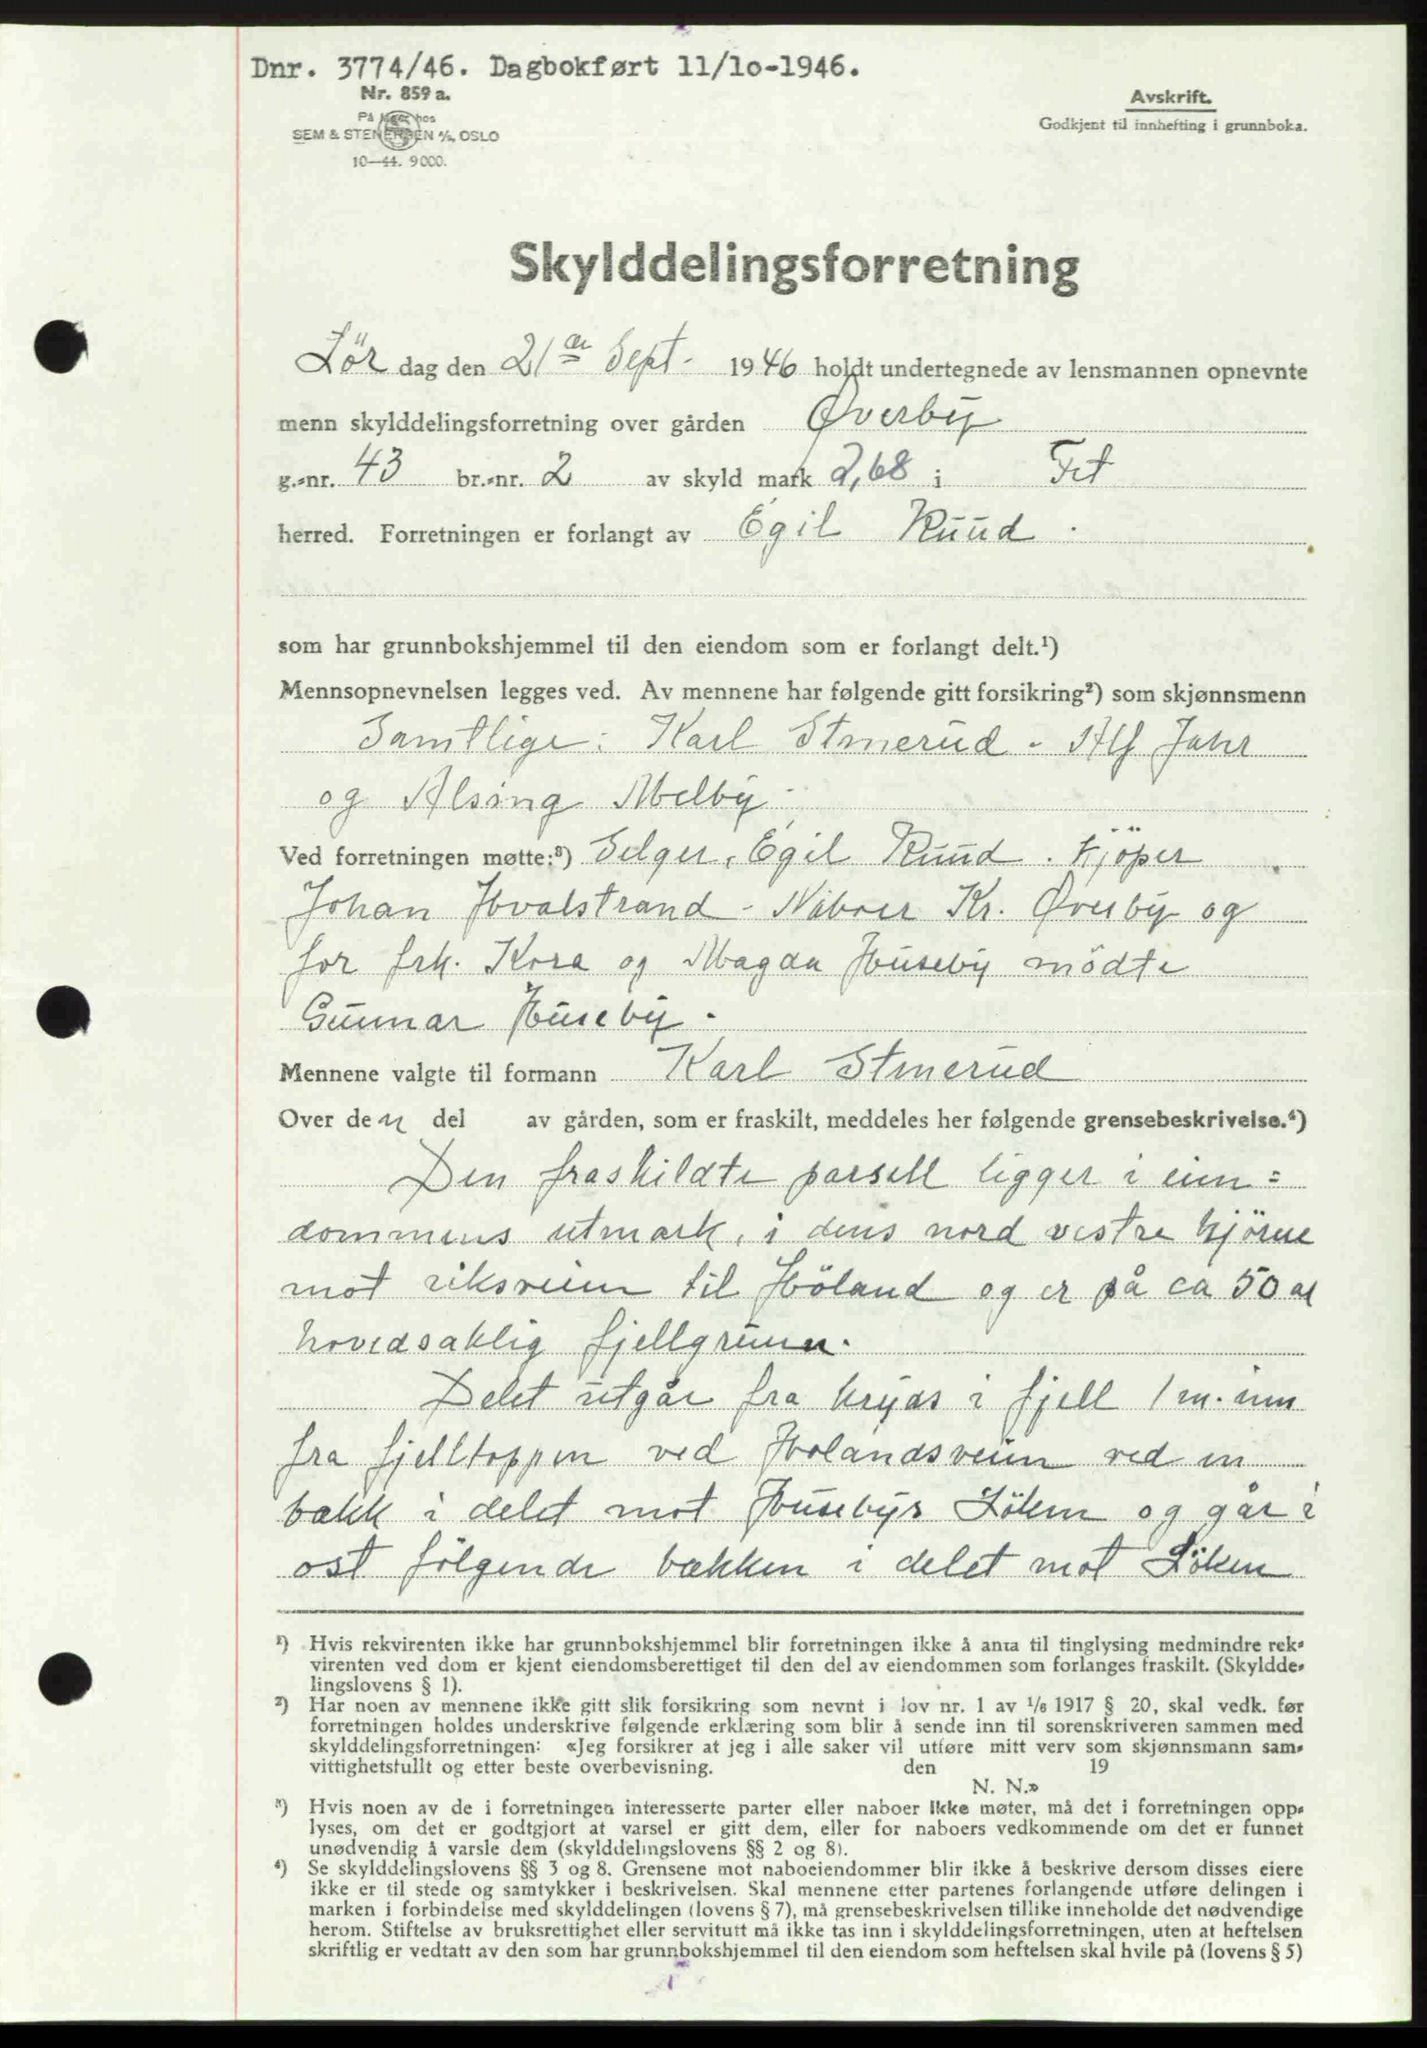 Dnr. 3774/46. Dagbokført 11/10-1946.
Nr. 859 a.
På lager hos
SEM & STENERSEN A/S, OSLO
10—44. 9000.
Avskrift.
Godkjent til innhefting i grunnboka.
Skylddelingsforretning
Lör dag den 21de Sept. 1946 holdt undertegnede av lensmannen opnevnte
menn skylddelingsforretning over gården Øverby
g.-nr. 43 br.-nr. 2 av skyld mark 2,68 i Fet
herred. Forretningen er forlangt av Egil Ruud.
som har grunnbokshjemmel til den eiendom som er forlangt delt.¹)
Mennsopnevnelsen legges ved. Av mennene har følgende gitt forsikring²) som skjønnsmenn
Samtlige: Karl Stmerud - Alf Jahr
og Alsing Melby.
Ved forretningen møtte:³) Selger, Egil Ruud. Kjöper
Johan Hvalstrand - Naboer Kr. Øverby og
for frk. Kora og Magda Huseby mödte
Gunnar Huseby.
Mennene valgte til formann Karl Stmerud
Over den del av gården, som er fraskilt, meddeles her følgende grensebeskrivelse.⁴)
Den fraskildte parsell ligger i eien=
dommens utmark, i dens nord vestre hjörne
mot riksveien til Höland og er på ca 50 ar
hovedsaklig fjellgrunn.
Delet utgår fra kryds i fjell 1 m. inn
fra fjelltoppen ved Holandsveien ved en
bekk i delet mot Husebys Löken og går i
ost fölgende bekken i delet mot Löken
¹) Hvis rekvirenten ikke har grunnbokshjemmel blir forretningen ikke å anta til tinglysing medmindre rek-
virenten ved dom er kjent eiendomsberettiget til den del av eiendommen som forlanges fraskilt. (Skyldde-
lingslovens § 1).
²) Har noen av mennene ikke gitt slik forsikring som nevnt i lov nr. 1 av 1/6 1917 § 20, skal vedk. før
forretningen holdes underskrive følgende erklæring som blir å sende inn til sorenskriveren sammen med
skylddelingsforretningen: «Jeg forsikrer at jeg i alle saker vil utføre mitt verv som skjønnsmann sam-
vittighetsfullt og etter beste overbevisning. den 19
N. N.»
³) Hvis noen av de i forretningen interesserte parter eller naboer ikke møter, må det i forretningen opp-
lyses, om det er godtgjort at varsel er gitt dem, eller for naboers vedkommende om det er funnet
unødvendig å varsle dem (skylddelingslovens §§ 2 og 8).
⁴) Se skylddelingslovens §§ 3 og 8. Grensene mot naboeiendommer blir ikke å beskrive dersom disses eiere
ikke er til stede og samtykker i beskrivelsen. Skal mennene etter partenes forlangende utføre delingen i
marken i forbindelse med skylddelingen (lovens § 7), må grensebeskrivelsen tillike inneholde det nødvendige
herom. Stiftelse av bruksrettighet eller servitutt må ikke tas inn i skylddelingsforretningen, uten at heftelsen
skriftlig er vedtatt av den som har grunnbokshjemmel til den eiendom som heftelsen skal hvile på (lovens § 5)